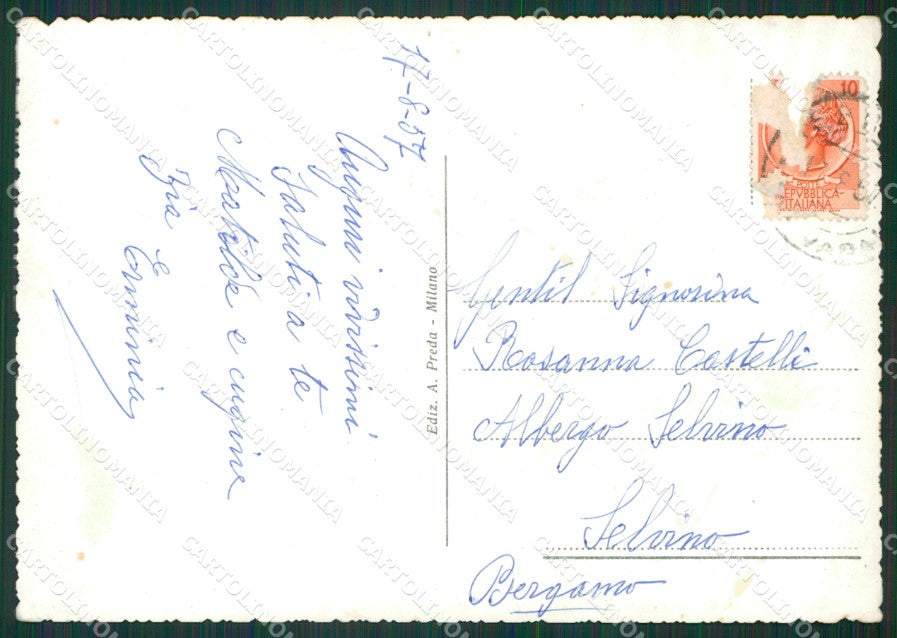 17-8-57
Auguri vivissimi
Saluti a te
Matilde e cugine
Zia Erminia
Ediz. A. Preda - Milano
10
POSTE
REPVBBLICA
ITALIANA
Gentil Signorina
Rosanna Castelli
Albergo Selvino
Selvino
Bergamo
CARTOLINOMANIA